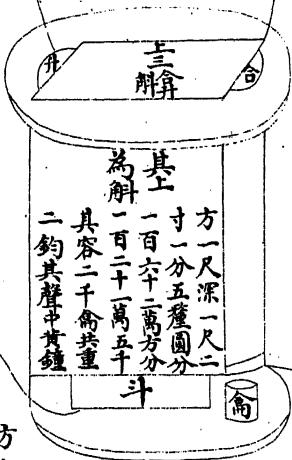 升
合
上三
斛
其上
為斛
方一尺深一尺二
寸一分五釐圓分
一百六十二萬方分
一百二十一萬五千
其容二千龠共重
二鈞其聲中黃鐘
斗
龠
方